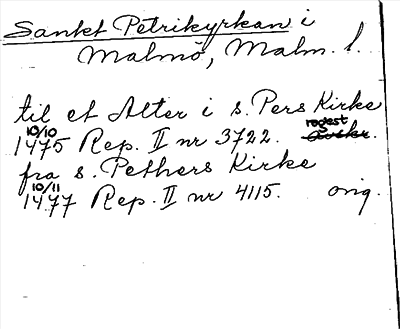 Sankt Petrikyrkan i
Malmö, Malm. l.
til et Alter i s. Pers Kirke
10/10 regest
1475 Rep. II nr 3722.
fra s. Pethers Kirke
10/11
1477 Rep. II nr 4115. orig.